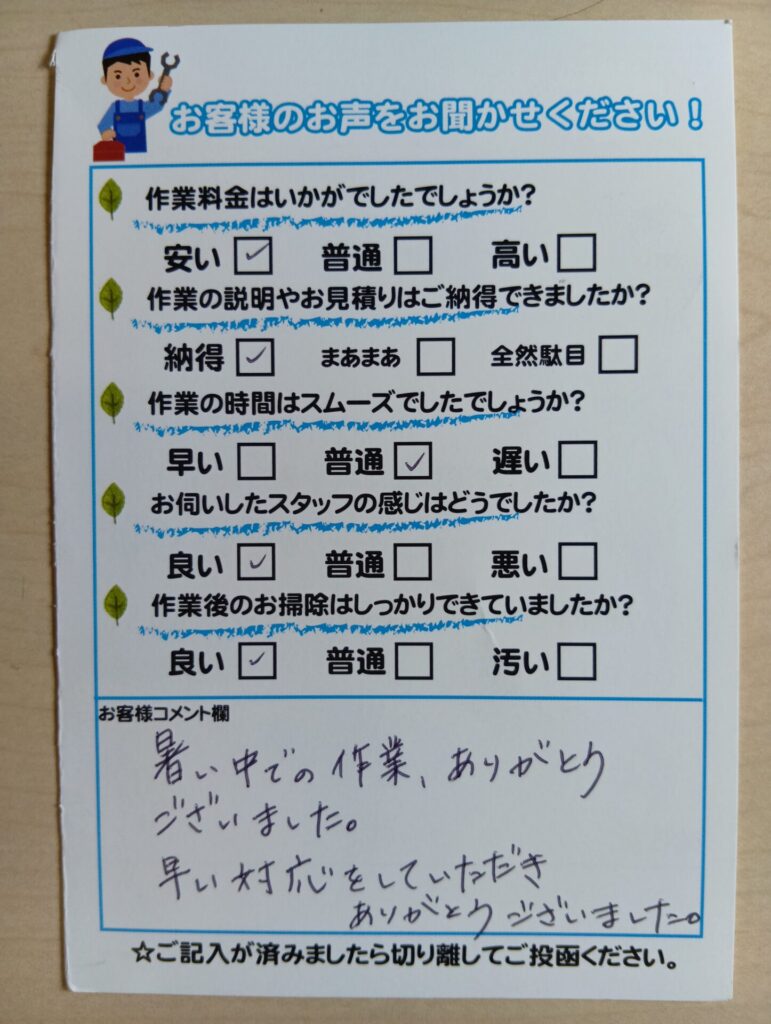 お客様のお声をお聞かせください！
作業料金はいかがでしたでしょうか？
安い ☑ 普通 □ 高い □
作業の説明やお見積りはご納得できましたか？
納得 ☑ まあまあ □ 全然駄目 □
作業の時間はスムーズでしたでしょうか？
早い □ 普通 ☑ 遅い □
お伺いしたスタッフの感じはどうでしたか？
良い ☑ 普通 □ 悪い □
作業後のお掃除はしっかりできていましたか？
良い ☑ 普通 □ 汚い □
お客様コメント欄
暑い中での作業、ありがとう
ございました。
早い対応をしていただき
ありがとうございました。
☆ご記入が済みましたら切り離してご投函ください。